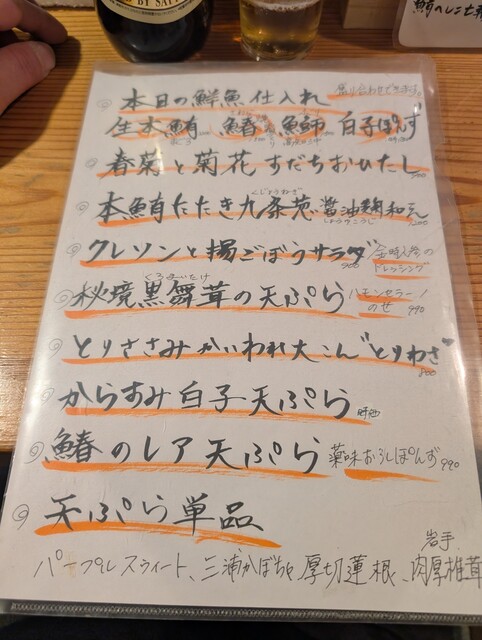 BY SAPP
本日の鮮魚仕入れ 盛り合わせできます。
生本鮪 鰆 鰤 白子ぽんず
春菊と菊花すだちおひたし
くじょうねぎ
本鮪たたき九条葱醤油麹和え
しょうゆこうじ
クレソンと揚ごぼうサラダ 900 金時人参のドレッシング
くろまいたけ
秘境黒舞茸の天ぷら ハモンセラーノのせ 990
とりささみかいわれ大こん"とりわさ" 800
からすみ白子天ぷら 時価
鰆のレア天ぷら 薬味おろしぽんず 990
天ぷら単品
岩手
パープルスウィート、三浦かぼちゃ、厚切蓮根、肉厚椎茸